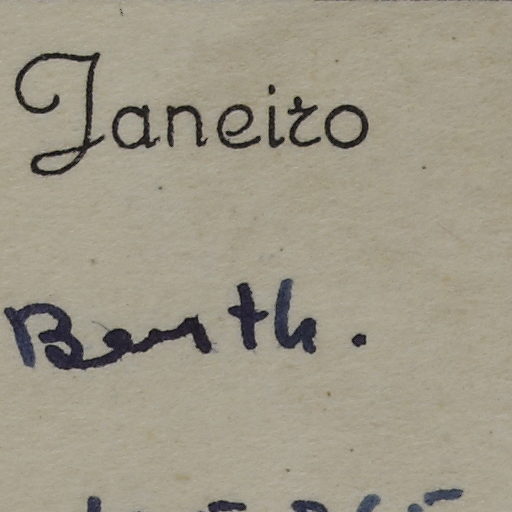 Janeiro
Benth.